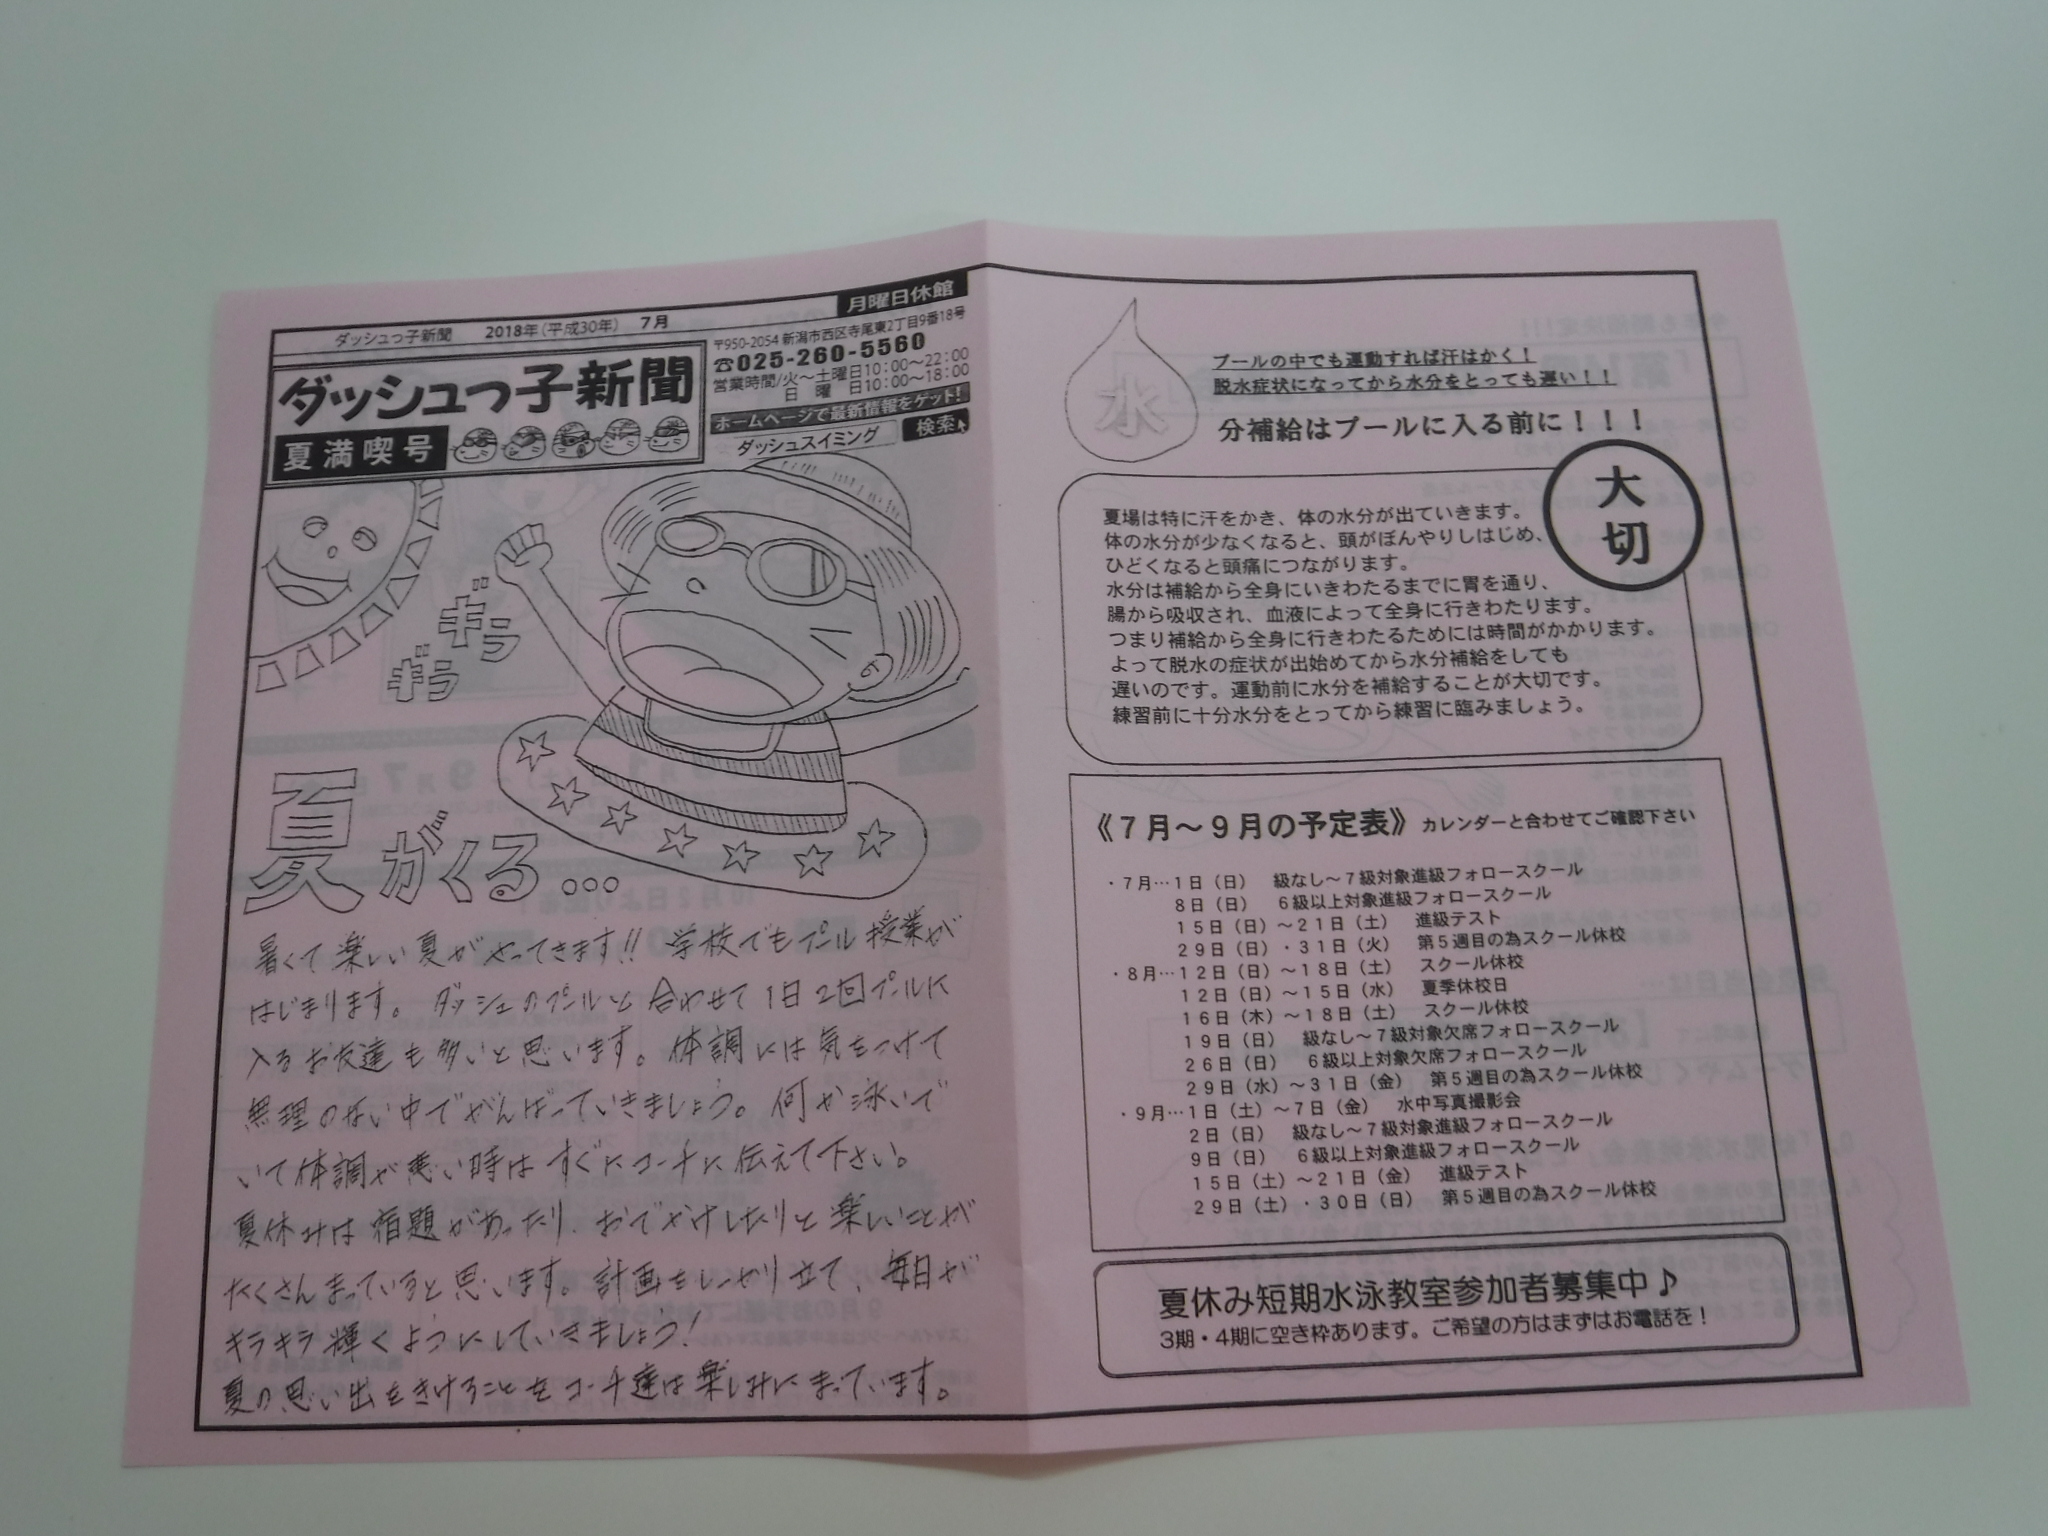 ダッシュっ子新聞 2018年(平成30年) 7月
月曜日休館
ダッシュっ子新聞
夏満喫号
〒950-2054 新潟市西区寺尾東2丁目9番18号
☎025-260-5560
営業時間/火～土曜日10:00～22:00
日 曜 日10:00～18:00
ホームページで最新情報をゲット!
ダッシュスイミング 検索
ギラ
ギラ
夏がくる...
暑くて楽しい夏がやってきます!! 学校でもプール授業が
はじまります。ダッシュのプールと合わせて1日2回プールに
入るお友達も多いと思います。体調には気をつけて
無理のない中でがんばっていきましょう。何か泳いで
いて体調が悪い時はすぐにコーチに伝えて下さい。
夏休みは宿題があったり、おでかけしたりと楽しいことが
たくさんまっていると思います。計画をしっかり立て、毎日が
キラキラ輝くようにしていきましょう!
夏の思い出をきけることをコーチ達は楽しみにまっています。
水
プールの中でも運動すれば汗はかく！
脱水症状になってから水分をとっても遅い！！
分補給はプールに入る前に！！！
大切
夏場は特に汗をかき、体の水分が出ていきます。
体の水分が少なくなると、頭がぼんやりしはじめ、
ひどくなると頭痛につながります。
水分は補給から全身にいきわたるまでに胃を通り、
腸から吸収され、血液によって全身に行きわたります。
つまり補給から全身に行きわたるためには時間がかかります。
よって脱水の症状が出始めてから水分補給をしても
遅いのです。運動前に水分を補給することが大切です。
練習前に十分水分をとってから練習に臨みましょう。
《７月～９月の予定表》カレンダーと合わせてご確認下さい
・７月…１日（日） 級なし～７級対象進級フォロースクール
８日（日） ６級以上対象進級フォロースクール
１５日（日）～２１日（土） 進級テスト
２９日（日）・３１日（火） 第５週目の為スクール休校
・８月…１２日（日）～１８日（土） スクール休校
１２日（日）～１５日（水） 夏季休校日
１６日（木）～１８日（土） スクール休校
１９日（日） 級なし～７級対象欠席フォロースクール
２６日（日） ６級以上対象欠席フォロースクール
２９日（水）～３１日（金） 第５週目の為スクール休校
・９月…１日（土）～７日（金） 水中写真撮影会
２日（日） 級なし～７級対象進級フォロースクール
９日（日） ６級以上対象進級フォロースクール
１５日（土）～２１日（金） 進級テスト
２９日（土）・３０日（日） 第５週目の為スクール休校
夏休み短期水泳教室参加者募集中♪
3期・4期に空き枠あります。ご希望の方はまずはお電話を！